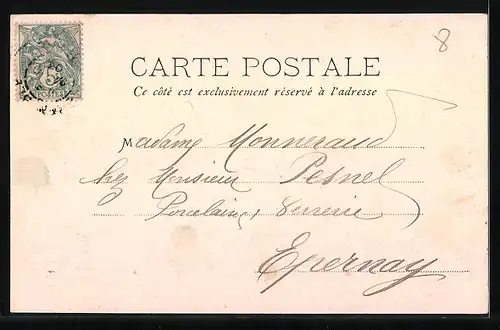 8
5
CARTE POSTALE
Ce côté est exclusivement réservé à l'adresse
Madame Monneraud
chez Monsieur Pesnel
Porcelaine, Verrerie
Epernay